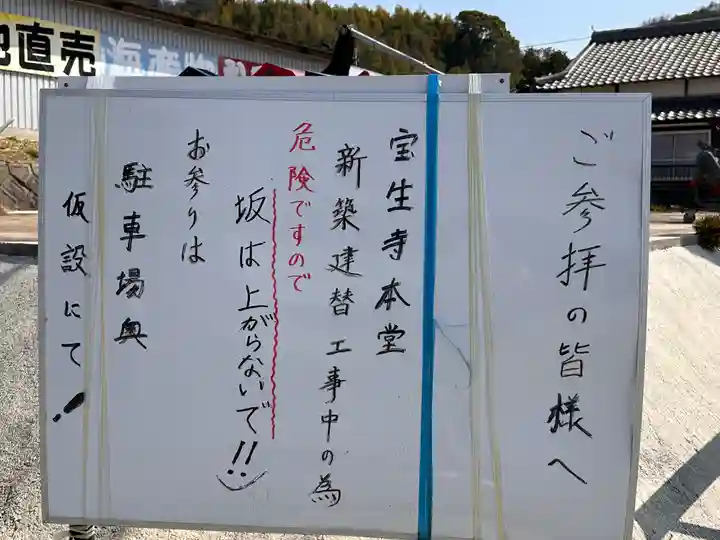 ご参拝の皆様へ
宝生寺本堂
新築建替工事中の為
危険ですので
坂は上がらないで!!
お参りは
駐車場奥
仮設にて!
直売
海産物